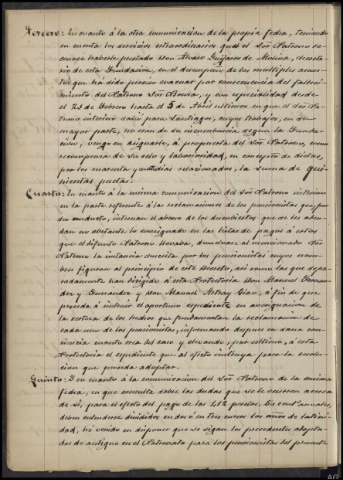 Tercero: En cuanto á la otra comunicacion de la propia fecha, teniendo
en cuenta los servicios extraordinarios que el Sor Patrono re-
conoce haberle prestado Don Alvaro Guijarro de Molina, Secreta-
rio de esta Fundacion, en el desempeño de los multiples asun-
tos que há sido preciso evacuar por consecuencia del falleci-
miento del Patrono Sor y en especialidad desde
el 23 de Febrero hasta el 5 de Abril ultimos en que el Sor Pa-
trono interino salió para Santiago, cuyos trabajos, en su
mayor parte, no eran de su incumbencia segun la Funda-
cion, vengo en asignarle, á propuesta del Sor Patrono, como
recompensa de su celo y laboriosidad, en concepto de dietas,
por los cuarenta y dias ocasionados, la suma de qui-
nientas pesetas.
Cuarto: En cuanto á la misma comunicacion del Sor Patrono interino
en la parte referente á la reclamaciones de los pensionistas que, por
su conducto, interesan el abono de los descubiertos que se les adeu-
dan no obstante lo consignado en las listas de pagos á estos
que el difunto Patrono llevaba, devuélvase al mencionado Sor
Patrono la instancia suscrita por los pensionistas cuyos nom-
bres figuran al principio de este Decreto, asi como las que sepa-
radamente han dirigido á esta Protectoria Don Marcos
dez y Fernandez y Don Manuel á fin de que
proceda á instruir el oportuno expediente en averiguacion de
la certeza de los hechos que fundamentan la reclamacion de
cada uno de los pensionistas, informando despues en dicha con-
ciencia cuanto crea del caso y elevando, por ultimo, á esta
Protectoria el expediente que al efecto instruya para la resolu-
cion que proceda adoptar.
Quinto: Y en cuanto á la comunicacion del Sor Patrono de la misma
fecha, en que consulta sobre las dudas que se le ocurren acerca
de si, para el efecto del pago de las 412 pesetas, 50 centimos,
deben entenderse divididos en dos ó en tres cursos los años de latini-
dad, hé venido en disponer que se sigan los precedentes adopta-
dos de antiguo en el Patronato para los pensionistas del presente